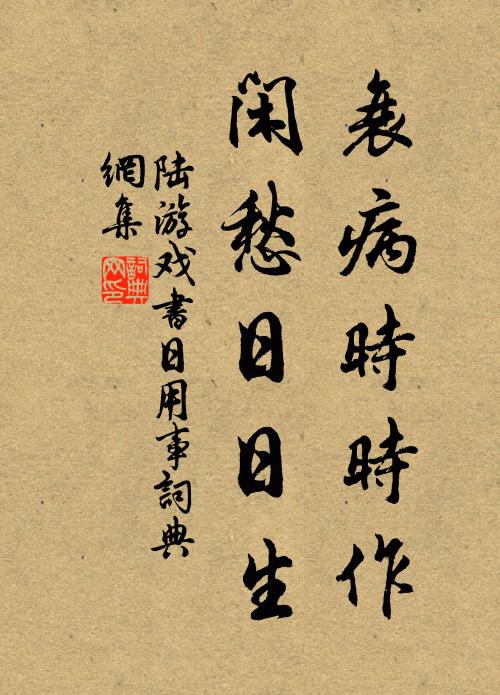 衰病時時作
閑愁日日生
陆游戏書日用事詞典
網集
詞典
网印